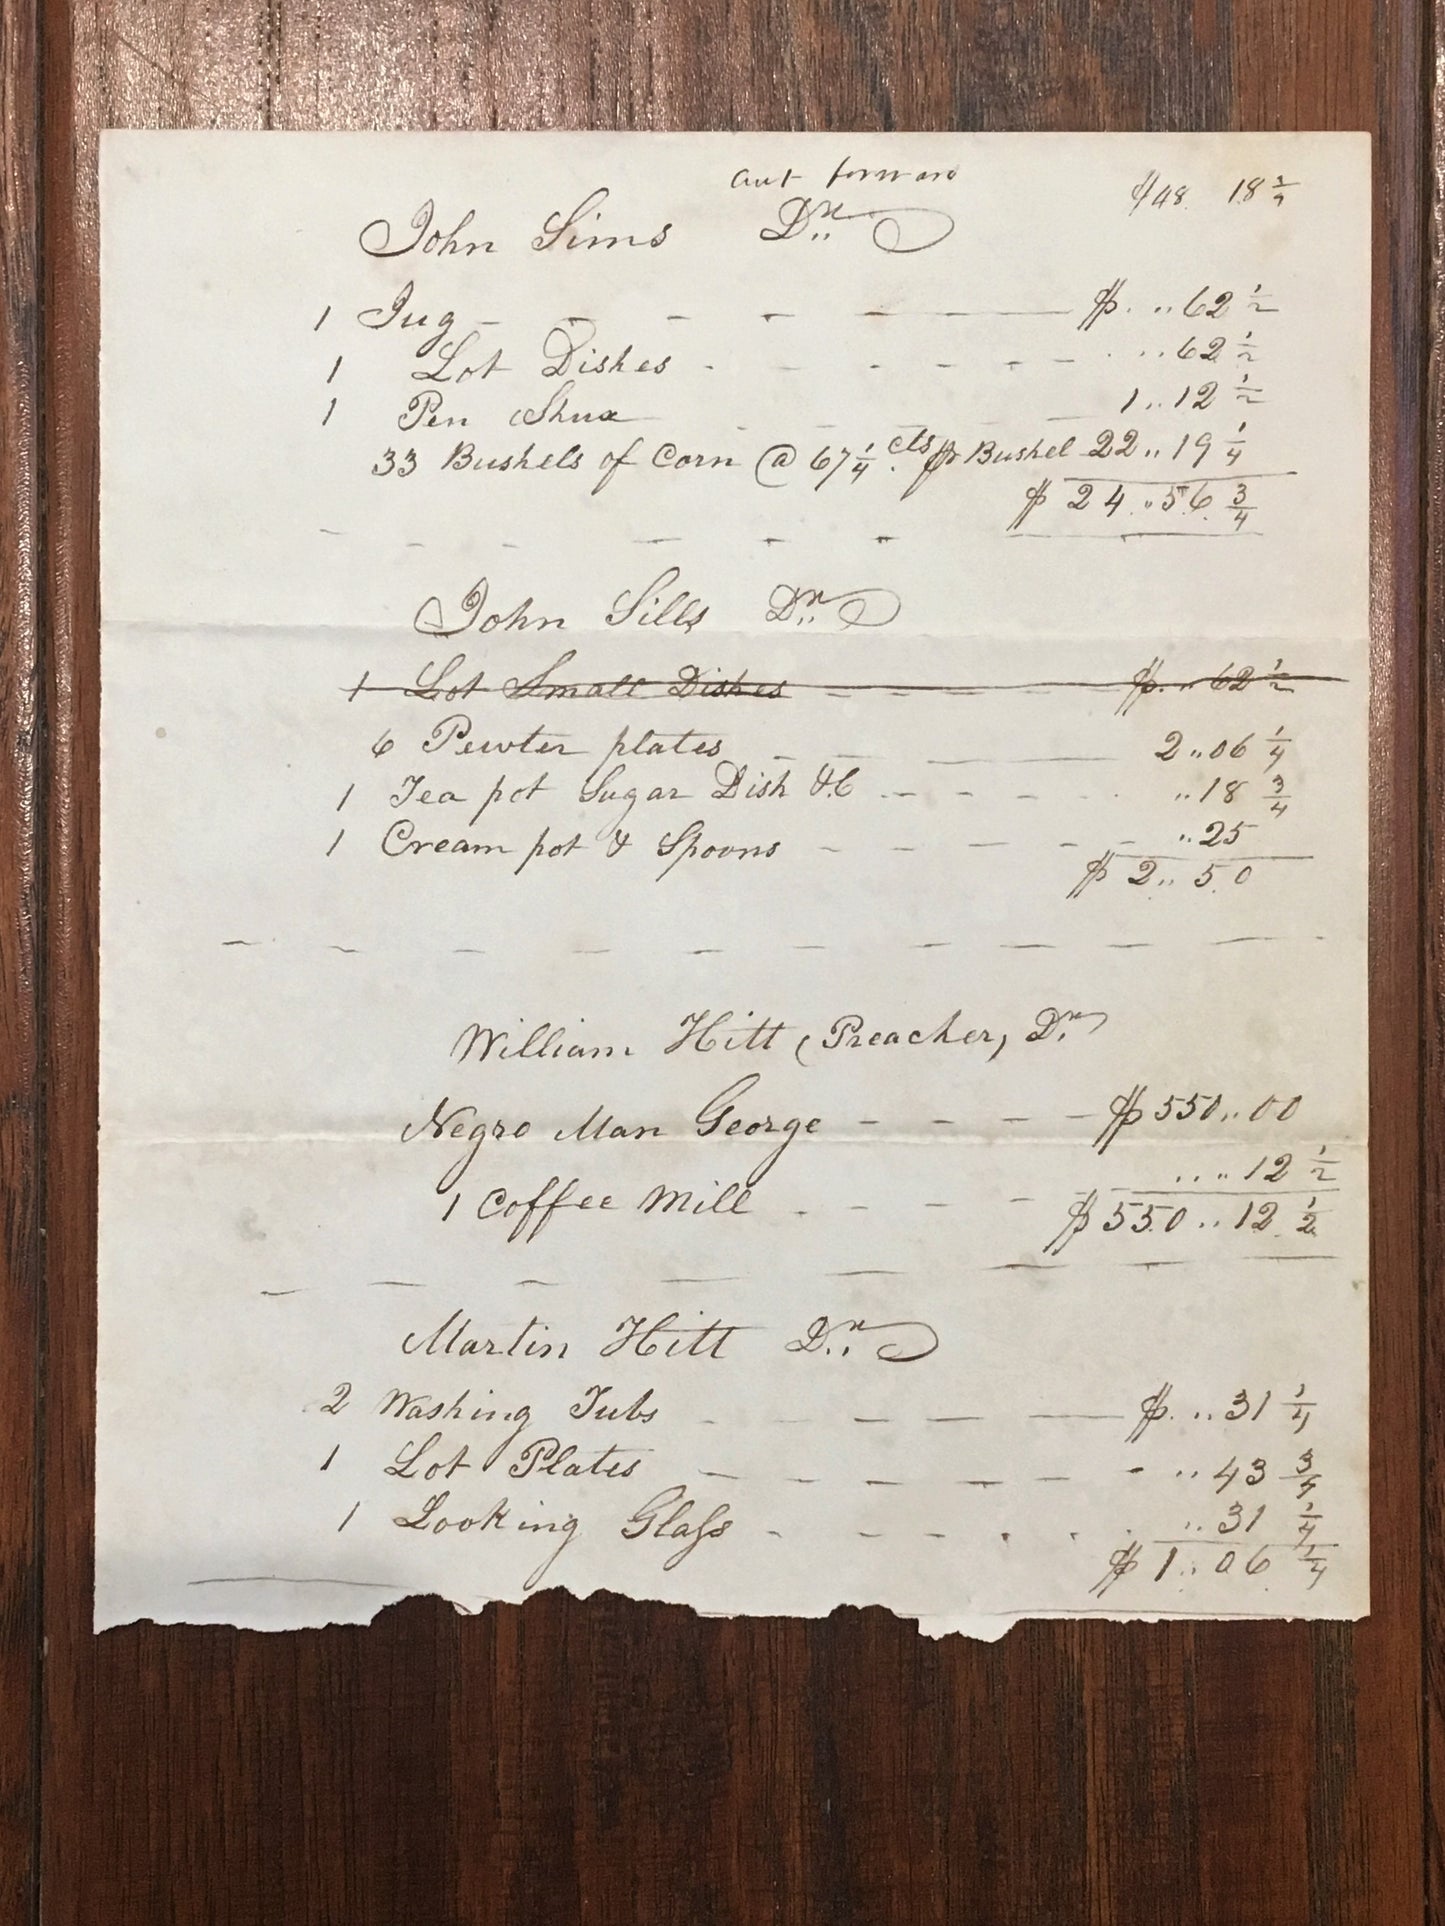 amt forward $48 18 1/2
John Sims Dr..
1 Jug - - - - - $ .. 62 1/2
1 Lot Dishes - - - - - .. 62 1/2
1 Pen Shux - - 1 .. 12 1/2
33 Bushels of Corn @ 67 1/4 cts pr Bushel 22 .. 19 1/4
$ 24 .. 56 3/4
John Sills Dr..
1 Lot Small Dishes - - $ .. 62 1/2
6 Pewter plates - - - 2 .. 06 1/4
1 Tea pot Sugar Dish &C - - - - .. 18 3/4
1 Cream pot & Spoons - - - - .. 25
$ 2 .. 50
William Hitt (Preacher) Dr.
Negro Man George - - - - $ 550 .. 00
1 Coffee Mill - - - - .. 12 1/2
$ 550 .. 12 1/2
Martin Hitt Dr..
2 Washing Tubs - - - - $ .. 31 1/4
1 Lot Plates - - - - - .. 43 3/4
1 Looking Glass - - - - .. 31 1/4
$ 1 .. 06 1/4